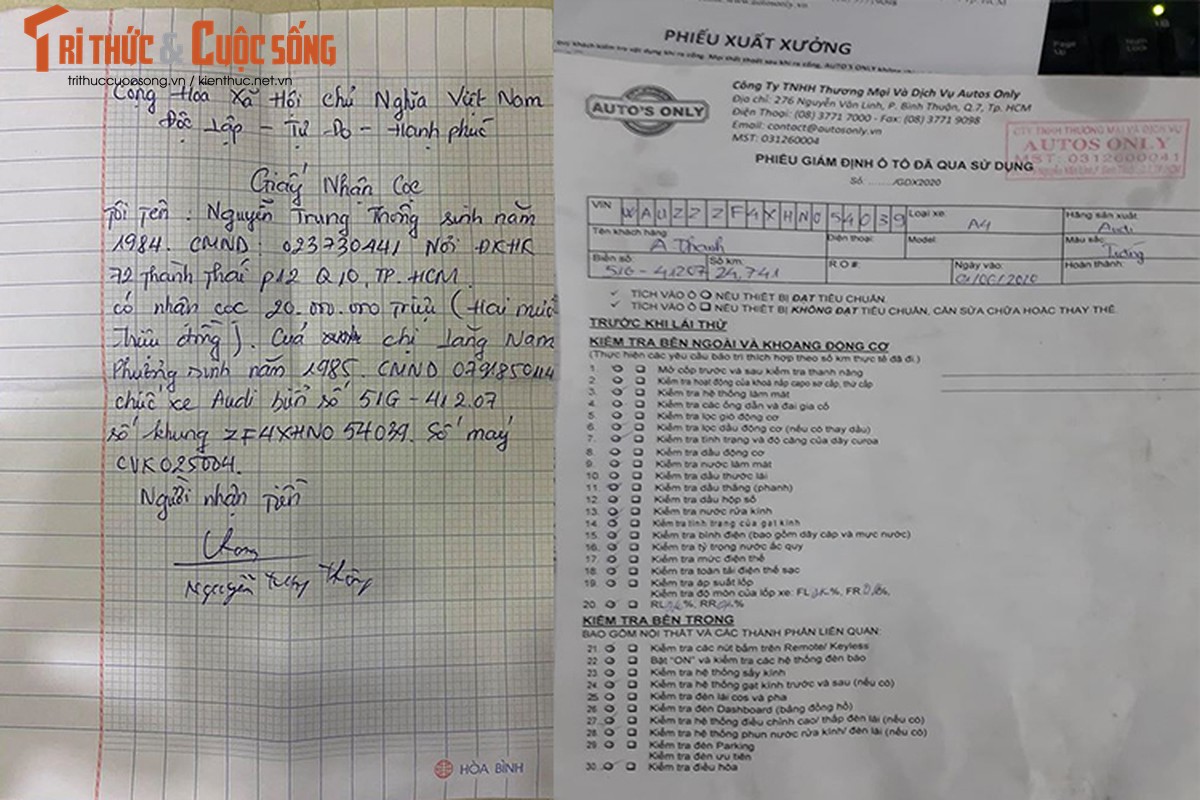 TRI THỨC & CUỘC SỐNG
trithuccuocsong.vn / kienthuc.net.vn
Cộng Hòa Xã Hội chủ Nghĩa Việt Nam
Độc Lập - Tự Do - Hạnh phúc
Giấy Nhận Cọc
Tôi Tên : Nguyễn Trung Thông sinh năm
1984. CMND : 023730441 Nơi ĐKHK
72 Thành Thái p12 Q10. TP. HCM.
có nhận cọc 20.000.000 Triệu ( Hai mươi
Triệu đồng ). Của chị Tăng Nam
Phương sinh năm 1985. CMND
chiếc xe Audi biển số 51G - 412.07
số khung ZF4XHN0 54039. Số máy
CVK025004.
Người nhận Tiền
Nguyễn Trung Thông
HÒA BÌNH
PHIẾU XUẤT XƯỞNG
AUTO'S ONLY
Công Ty TNHH Thương Mại Và Dịch Vụ Autos Only
Địa chỉ: 276 Nguyễn Văn Linh, P. Bình Thuận, Q.7, Tp. HCM
Điện Thoại: (08) 3771 7000 - Fax: (08) 3771 9098
Email: contact@autosonly.vn
MST: 031260004
CTY TNHH THƯƠNG MẠI VÀ DỊCH VỤ
AUTOS ONLY
MST: 0312600041
PHIẾU GIÁM ĐỊNH Ô TÔ ĐÃ QUA SỬ DỤNG
Số: ......../GDX2020
VIN WAUZZZF4XHN054039 Loại xe: A4 Hãng sản xuất: Audi
Tên khách hàng: A Thanh Điện thoại: Model: Màu sắc: Trắng
Biển số: 51G - 41207 Số km: 24,741 R.O #: Ngày vào: 01/06/2020 Hoàn thành:
TÍCH VÀO Ô O NẾU THIẾT BỊ ĐẠT TIÊU CHUẨN.
TÍCH VÀO Ô ☐ NẾU THIẾT BỊ KHÔNG ĐẠT TIÊU CHUẨN, CẦN SỬA CHỮA HOẶC THAY THẾ.
TRƯỚC KHI LÁI THỬ
KIỂM TRA BÊN NGOÀI VÀ KHOANG ĐỘNG CƠ
(Thực hiện các yêu cầu bảo trì thích hợp theo số km thực tế đã đi.)
1. Mở cốp trước và sau kiểm tra thanh nâng
2. Kiểm tra hoạt động của khoá nắp capo sơ cấp, thứ cấp
3. Kiểm tra hệ thống làm mát
4. Kiểm tra các ống dẫn và đai gia cố
5. Kiểm tra lọc gió động cơ
6. Kiểm tra lọc dầu động cơ (nếu có thay dầu)
7. Kiểm tra tình trạng và độ căng của dây curoa
8. Kiểm tra dầu động cơ
9. Kiểm tra nước làm mát
10. Kiểm tra dầu thước lái
11. Kiểm tra dầu thắng (phanh)
12. Kiểm tra dầu hộp số
13. Kiểm tra nước rửa kính
14. Kiểm tra tình trạng của gạt kính
15. Kiểm tra bình điện (bao gồm dây cáp và mực nước)
16. Kiểm tra tỷ trọng nước ắc quy
17. Kiểm tra mức điện thế
18. Kiểm tra toàn tải điện thế sạc
19. Kiểm tra áp suất lốp
Kiểm tra độ mòn của lốp xe: FL %, FR %,
20. RL %, RR %
KIỂM TRA BÊN TRONG
BAO GỒM NỘI THẤT VÀ CÁC THÀNH PHẦN LIÊN QUAN:
21. Kiểm tra các nút bấm trên Remote/ Keyless
22. Bật "ON" và kiểm tra các hệ thống đèn báo
23. Kiểm tra hệ thống sấy kính
24. Kiểm tra hệ thống gạt kính trước và sau (nếu có)
25. Kiểm tra đèn lái cos và pha
26. Kiểm tra đèn Dashboard (bảng đồng hồ)
27. Kiểm tra hệ thống điều chỉnh cao/ thấp đèn lái (nếu có)
28. Kiểm tra hệ thống phun nước rửa kính/ đèn lái (nếu có)
29. Kiểm tra đèn Parking
Kiểm tra đèn ưu tiên
30. Kiểm tra điều hòa